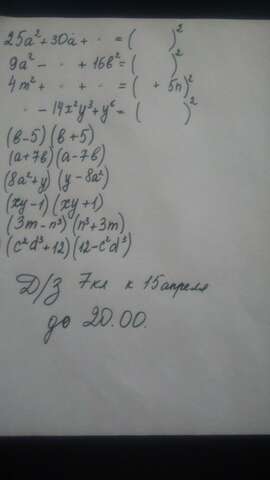 25a² + 30a + ·· = (      )²
9a² - ·· + 16b² = (      )²
4m² + ·· + ·· = (    + 5n)²
·· - 14x²y³ + y⁶ = (      )²
(b - 5)(b + 5)
(a + 7b)(a - 7b)
(8a² + y)(y - 8a²)
(xy - 1)(xy + 1)
(3m - n³)(n³ + 3m)
(c²d³ + 12)(12 - c²d³)
Д/З 7кл к 15 апреля
до 20.00.